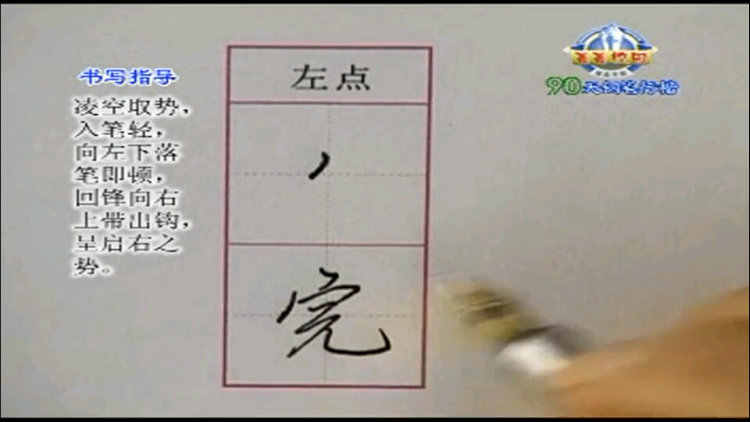 书写指导
凌空取势，
入笔轻，
向左下落
笔即顿，
回锋向右
上带出钩，
呈启右之
势。
左点
完
90天钢笔行楷